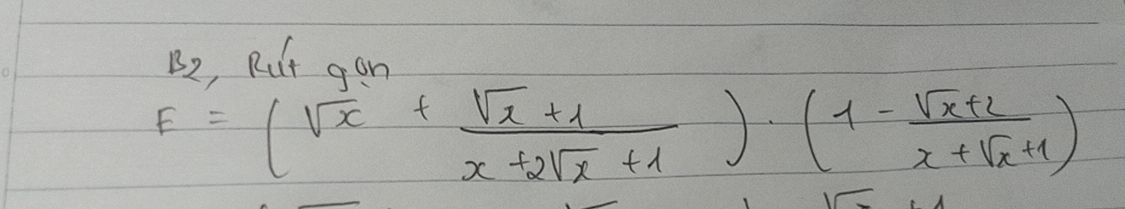 B2, Rút gọn
E = (√x + (√x + 1)/(x + 2√x + 1)) . (1 - (√x + 2)/(x + √x + 1))